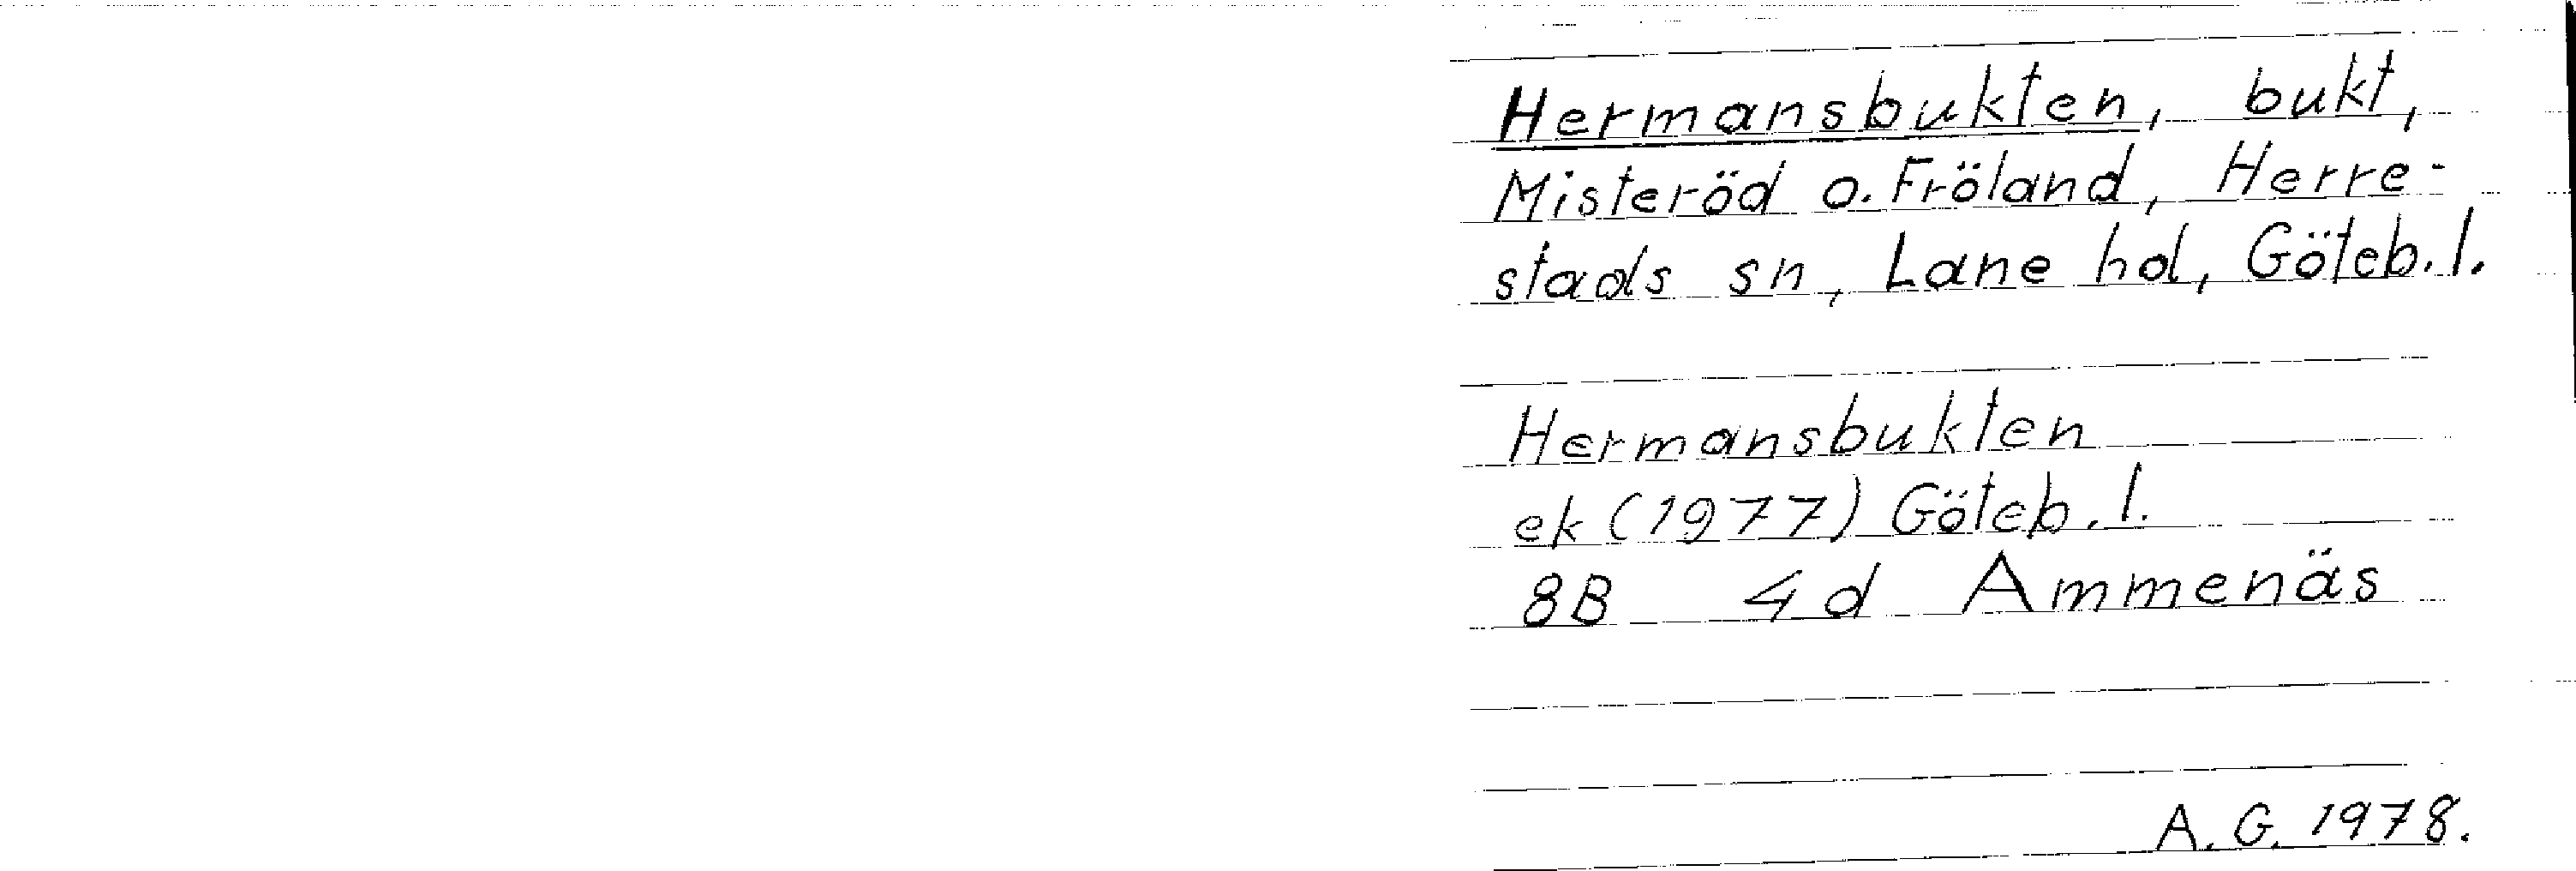 Hermansbukten, bukt,
Misteröd o. Fröland, Herre-
stads sn, Lane hd, Göteb. l.
Hermansbukten
ek (1977) Göteb. l.
8B 4d Ammenäs
A. G. 1978.